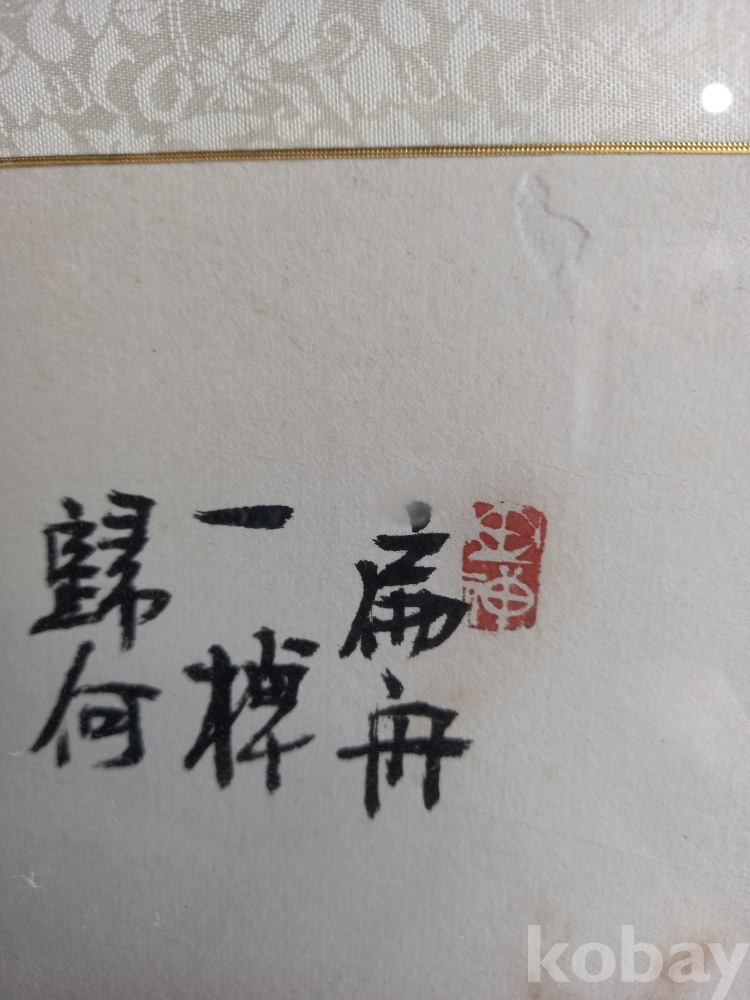 扁舟
一棹
歸何
kobay